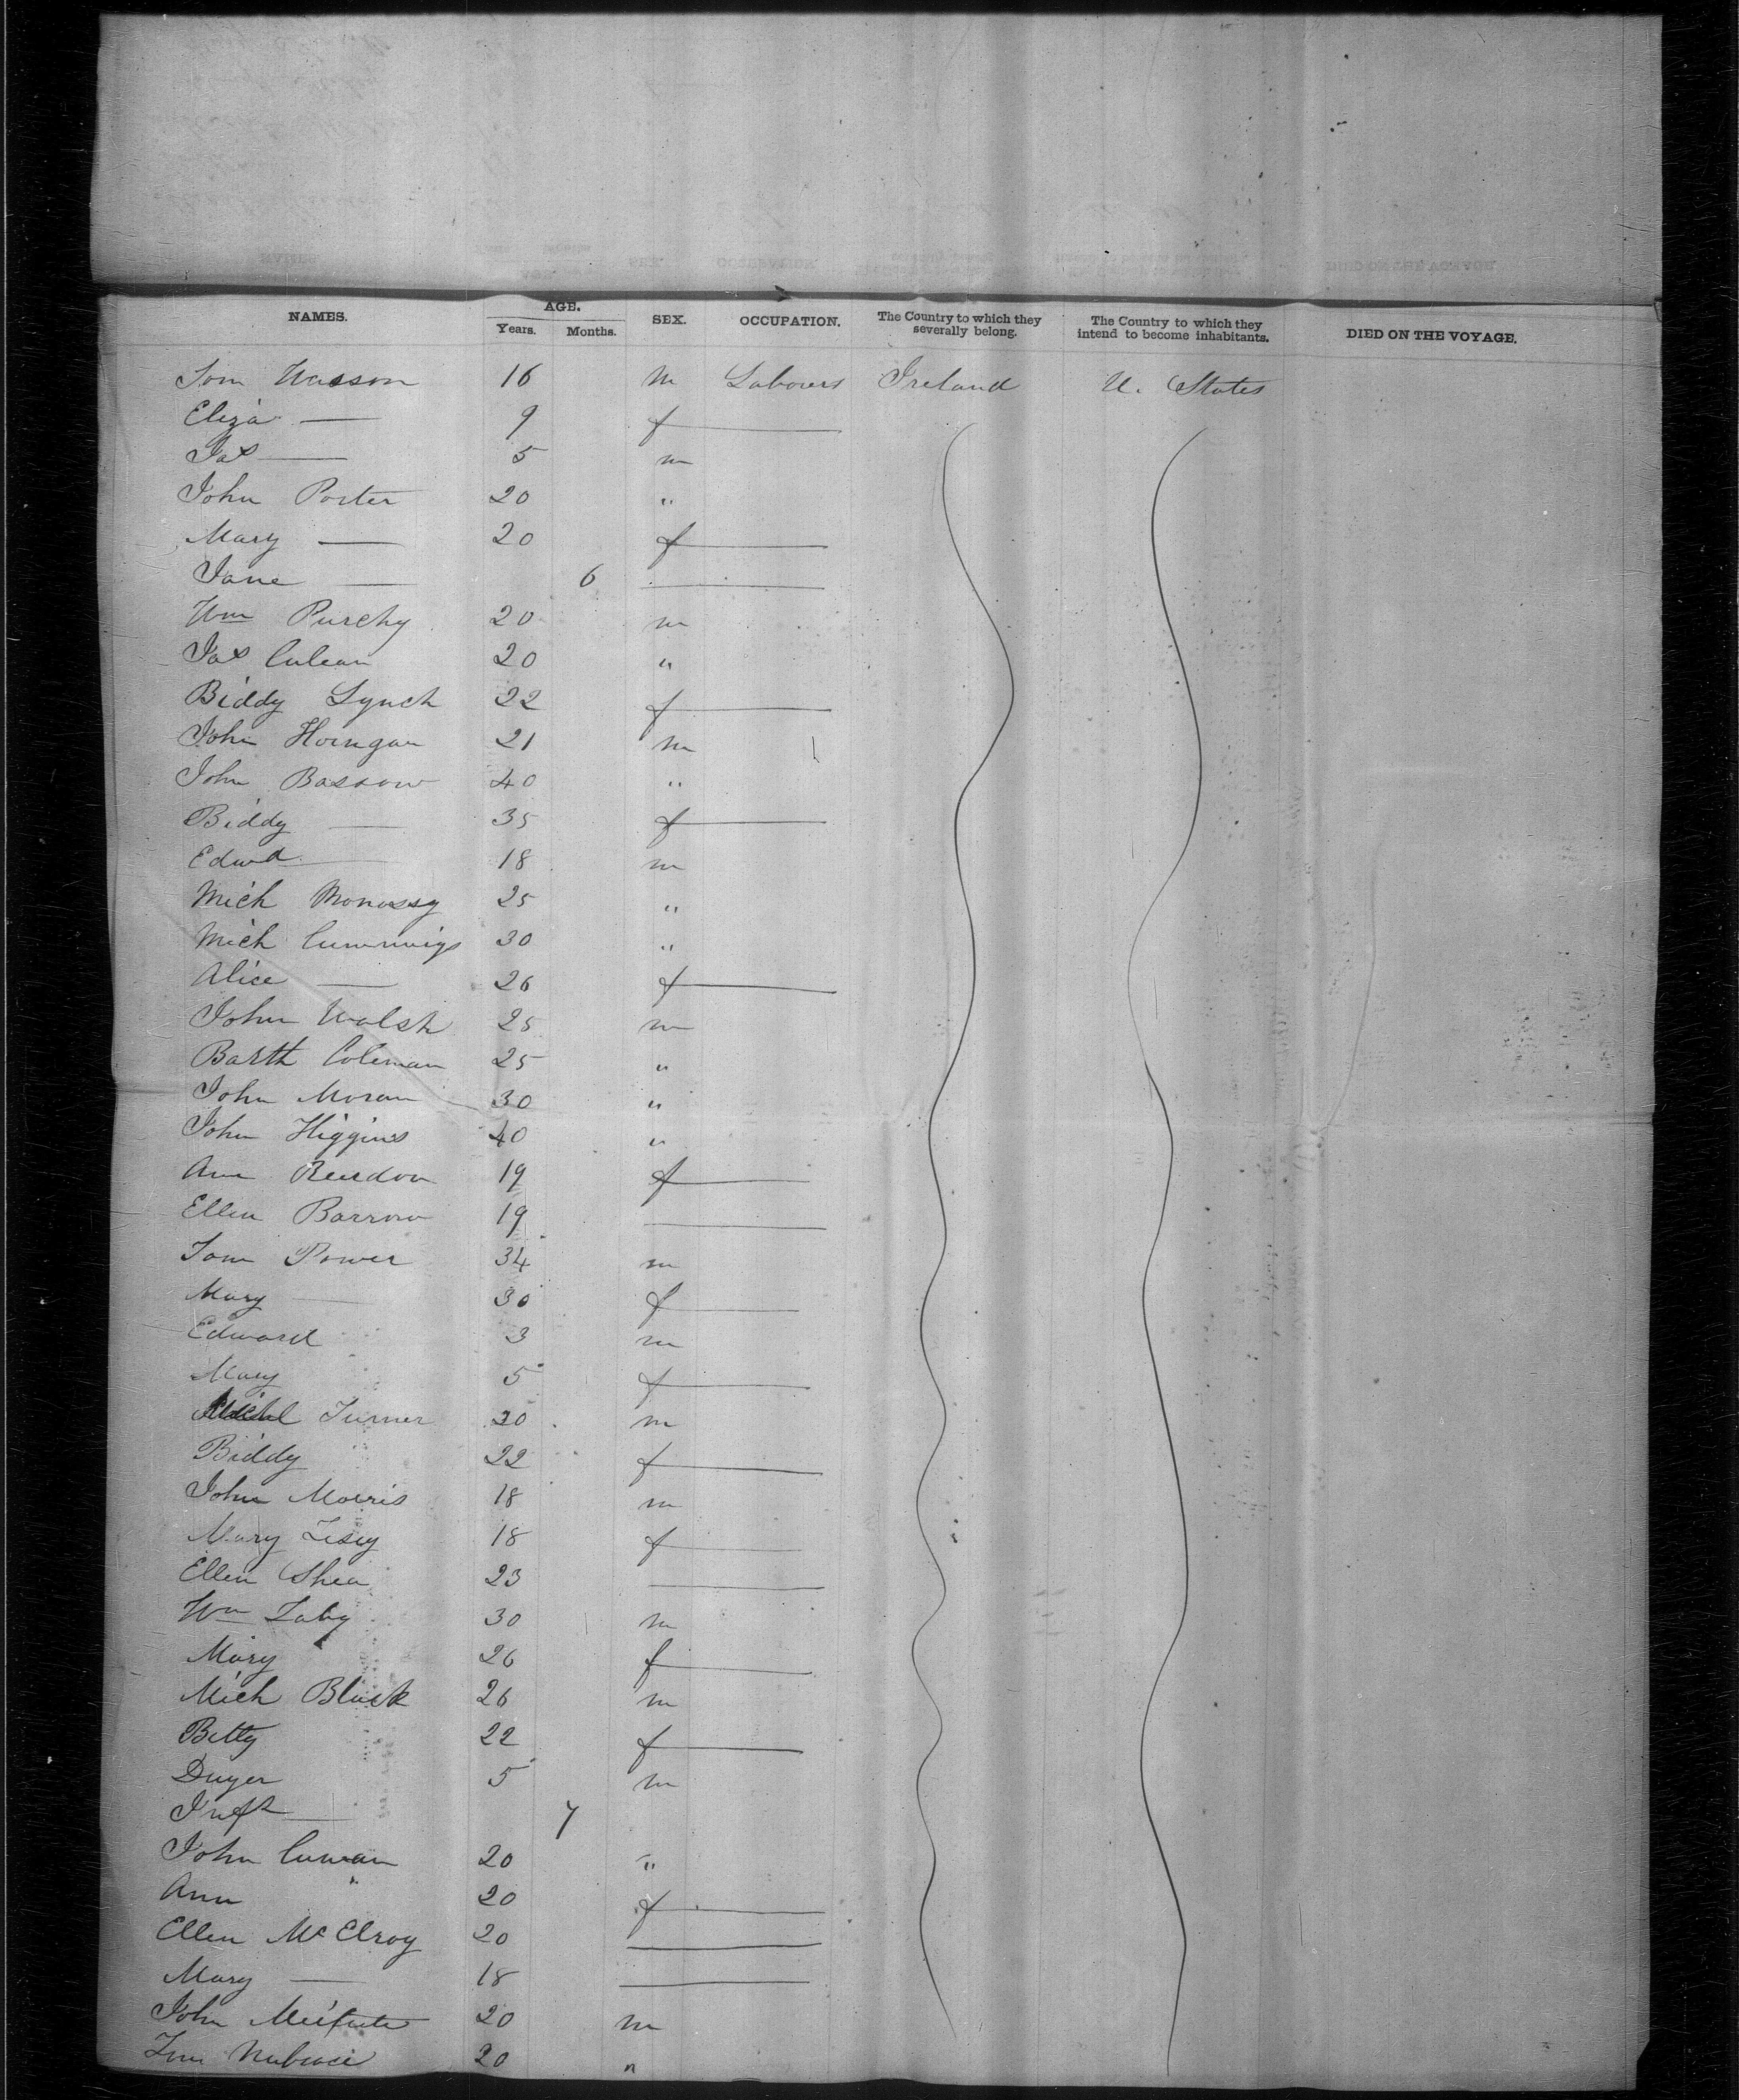 NAMES. AGE. Years. Months. SEX. OCCUPATION. The Country to which they severally belong. The Country to which they intend to become inhabitants. DIED ON THE VOYAGE.
Tom Wasson 16 m Labours Ireland U. States
Eliza — 9 f —
Jas — 5 m
John Porter 20 "
Mary — 20 f —
Jane — 6 —
Wm Purchy 20 m
Jas Culean 20 "
Biddy Lynch 22 f —
John Horngan 21 m
John Barrow 40 "
Biddy — 35 f —
Edwd — 18 m
Mich Monossy 25 "
Mich Cummings 30 "
Alice — 26 f —
John Walsh 25 m
Barth Coleman 25 "
John Moran 30 "
John Higgins 40 "
Ann Reardon 19 f —
Ellen Barrow 19 —
Tom Power 34 m
Mary — 30 f —
Edward 3 m
Mary 5 f —
Turner 30 m
Biddy 22 f —
John Morris 18 m
Mary 18 f —
Ellen Shea 23 —
Wm 30 m
Mary 26 f —
Mich Black 26 m
Betty 22 f —
Dwyer 5 m
Inft — 7
John Curran 20 "
Ann " 20 f —
Ellen McElroy 20 —
Mary — 18 —
John 20 m
20 "